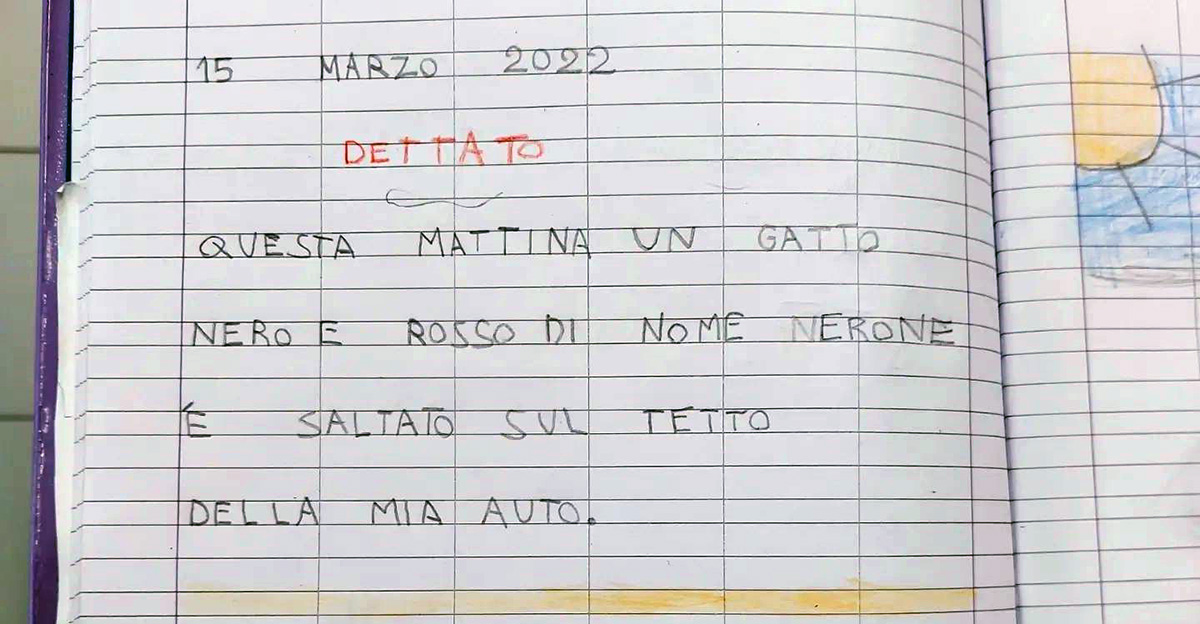 15 MARZO 2022
DETTATO
QUESTA MATTINA UN GATTO
NERO E ROSSO DI NOME NERONE
É SALTATO SUL TETTO
DELLA MIA AUTO.